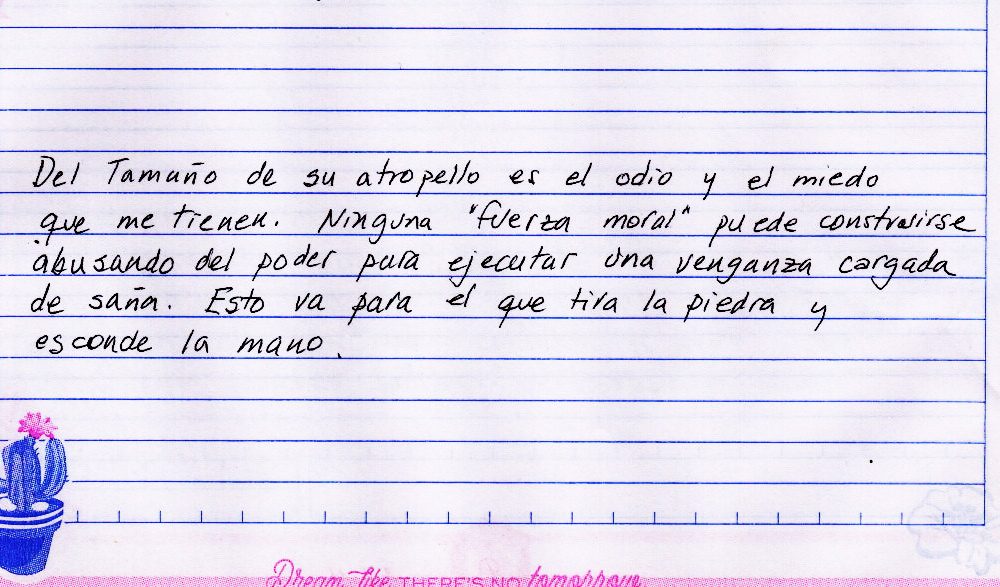 Del Tamaño de su atropello es el odio y el miedo
que me tienen. Ninguna "fuerza moral" puede construirse
abusando del poder para ejecutar una venganza cargada
de saña. Esto va para el que tira la piedra y
esconde la mano.
Dream like THERE'S NO tomorrow